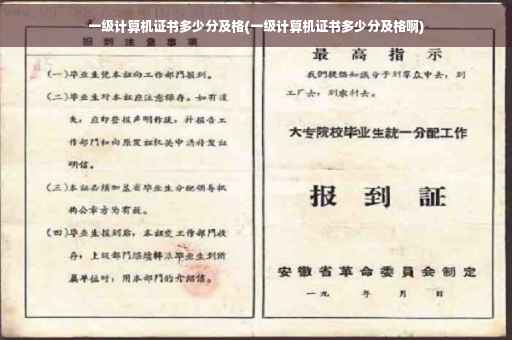 一级计算机证书多少分及格(一级计算机证书多少分及格啊)
报到注意事项
(一)毕业生凭本证向工作部门报到。
(二)毕业生对本证应注意保存。如有遗
失，应即登报声明作废，并报告工
作部门和向原发证机关申请补发证
明信。
(三)本证必须加盖省毕业生分配领导机
构公章方为有效。
(四)毕业生报到后，本证交工作部门收
存；上级部门继续转派毕业生到所
属单位时，用本部门的介绍信。
最高指示
我们提倡知识分子到群众中去，到
工厂去，到农村去。
大专院校毕业生统一分配工作
报到证
安徽省革命委员会制定
一九 年 月 日